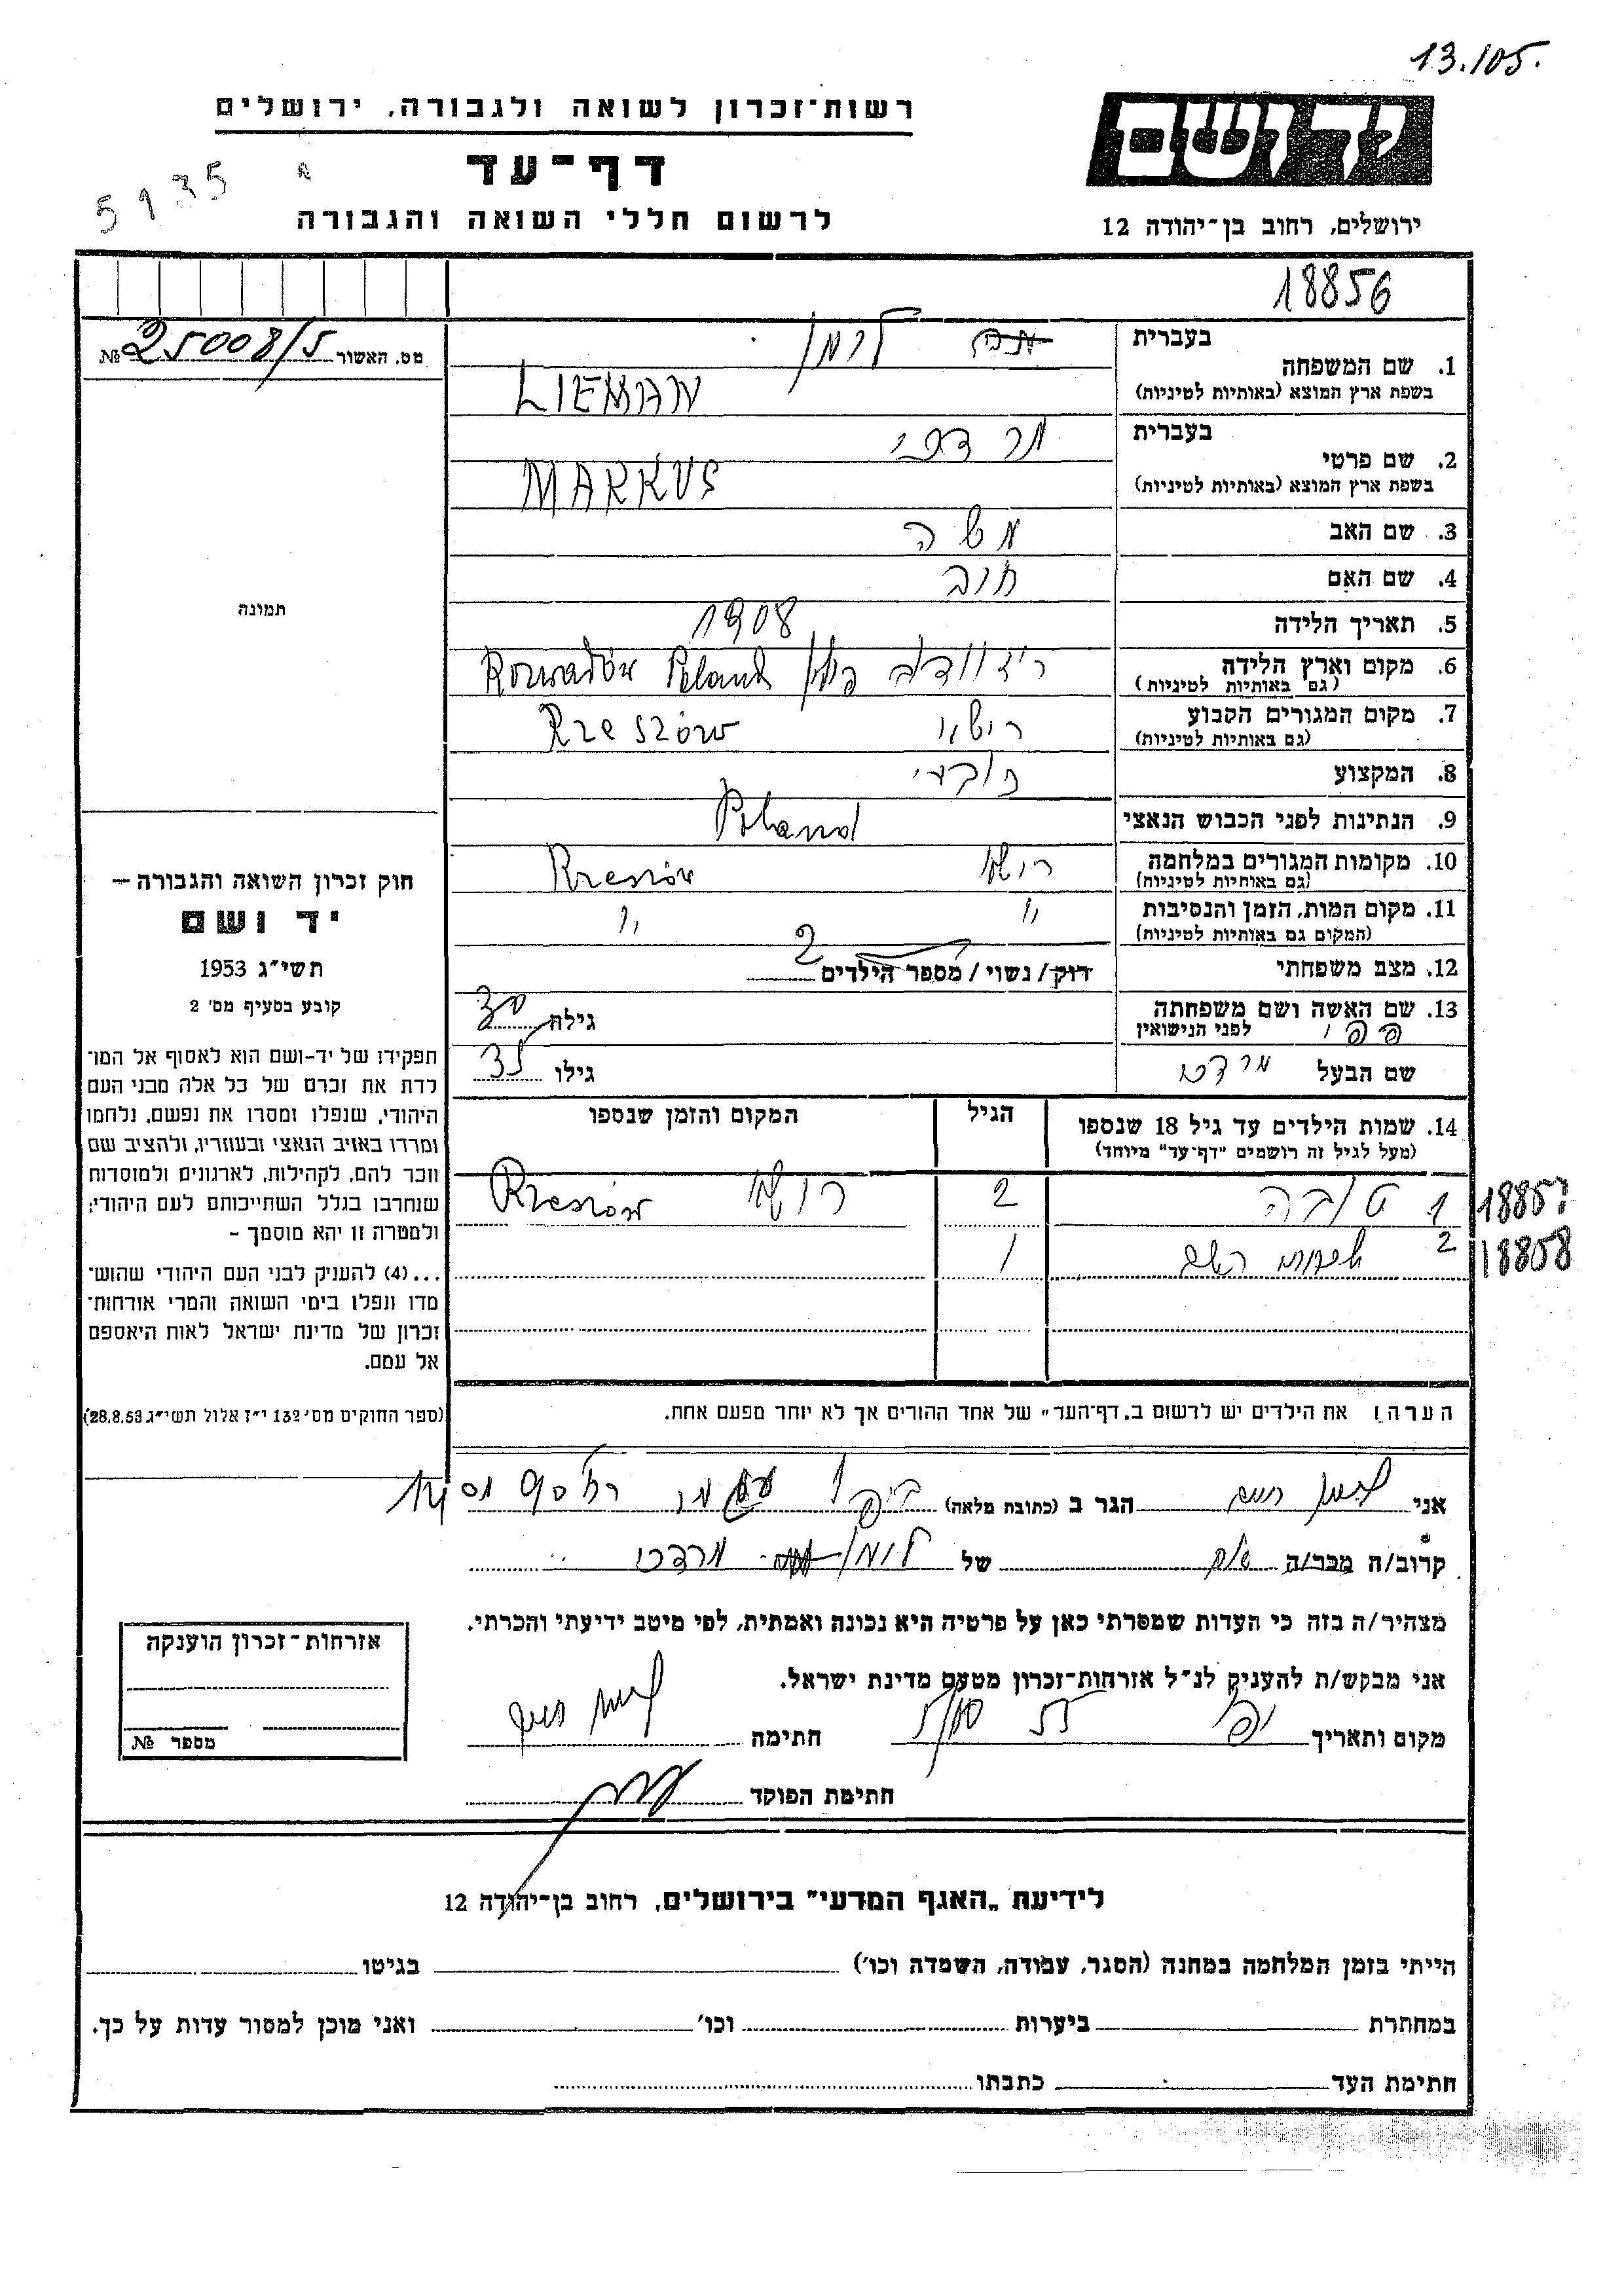 13.105.
רשות־זכרון לשואה ולגבורה, ירושלים
יד ושם
דף־עד
5135
לרשום חללי השואה והגבורה
ירושלים, רחוב בן־יהודה 12
18856
מס. האשור № 25008/5
1. שם המשפחה
בעברית
בשפת ארץ המוצא (באותיות לטיניות)
LIEMAN
2. שם פרטי
בעברית מרדכי
בשפת ארץ המוצא (באותיות לטיניות)
MARKUS
3. שם האב משה
4. שם האם
תמונה
5. תאריך הלידה 1908
6. מקום וארץ הלידה פולין Rozwadów Poland
(גם באותיות לטיניות)
7. מקום המגורים הקבוע Rzeszów
(גם באותיות לטיניות)
8. המקצוע
9. הנתינות לפני הכבוש הנאצי Poland
10. מקומות המגורים במלחמה Rzeszów
(גם באותיות לטיניות)
11. מקום המות, הזמן והנסיבות " "
(המקום גם באותיות לטיניות)
12. מצב משפחתי רוק/נשוי/מספר הילדים 2
13. שם האשה ושם משפחתה
לפני הנישואין
גילה 30
שם הבעל מרדכי גילו 35
14. שמות הילדים עד גיל 18 שנספו
(מעל לגיל זה רושמים "דף־עד" מיוחד)
הגיל
המקום והזמן שנספו
1 טובה 2 Rzeszów 18857
2 1 18858
הערה: את הילדים יש לרשום ב„דף־העד" של אחד ההורים אך לא יותר מפעם אחת.
חוק זכרון השואה והגבורה —
יד ושם
תשי"ג 1953
קובע בסעיף מס' 2
תפקידו של יד־ושם הוא לאסוף אל המו־
לדת את זכרם של כל אלה מבני העם
היהודי, שנפלו ומסרו את נפשם, נלחמו
ומרדו באויב הנאצי ובעוזריו, ולהציב שם
וזכר להם, לקהילות, לארגונים ולמוסדות
שנחרבו בגלל השתייכותם לעם היהודי;
ולמטרה זו יהא מוסמך –
...(4) להעניק לבני העם היהודי שהוש־
מדו ונפלו בימי השואה והמרי אזרחות־
זכרון של מדינת ישראל לאות היאספם
אל עמם.
(ספר החוקים מס' 132 י"ז אלול תשי"ג 28.8.53)
אני הגר ב (כתובת מלאה)
קרוב/ה מכר/ה של מרדכי
מצהיר/ה בזה כי העדות שמסרתי כאן על פרטיה היא נכונה ואמתית, לפי מיטב ידיעתי והכרתי.
אני מבקש/ת להעניק לנ"ל אזרחות־זכרון מטעם מדינת ישראל.
מקום ותאריך חתימה
חתימת הפוקד
אזרחות־זכרון הוענקה
מספר №
לידיעת „האגף המדעי" בירושלים, רחוב בן־יהודה 12
הייתי בזמן המלחמה במחנה (הסגר, עבודה, השמדה וכו') בגיטו
במחתרת ביערות וכו' ואני מוכן למסור עדות על כך.
חתימת העד כתבתו